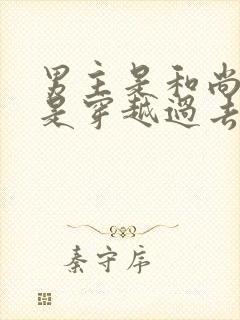 男主是和尚
是穿越過去
秦守序